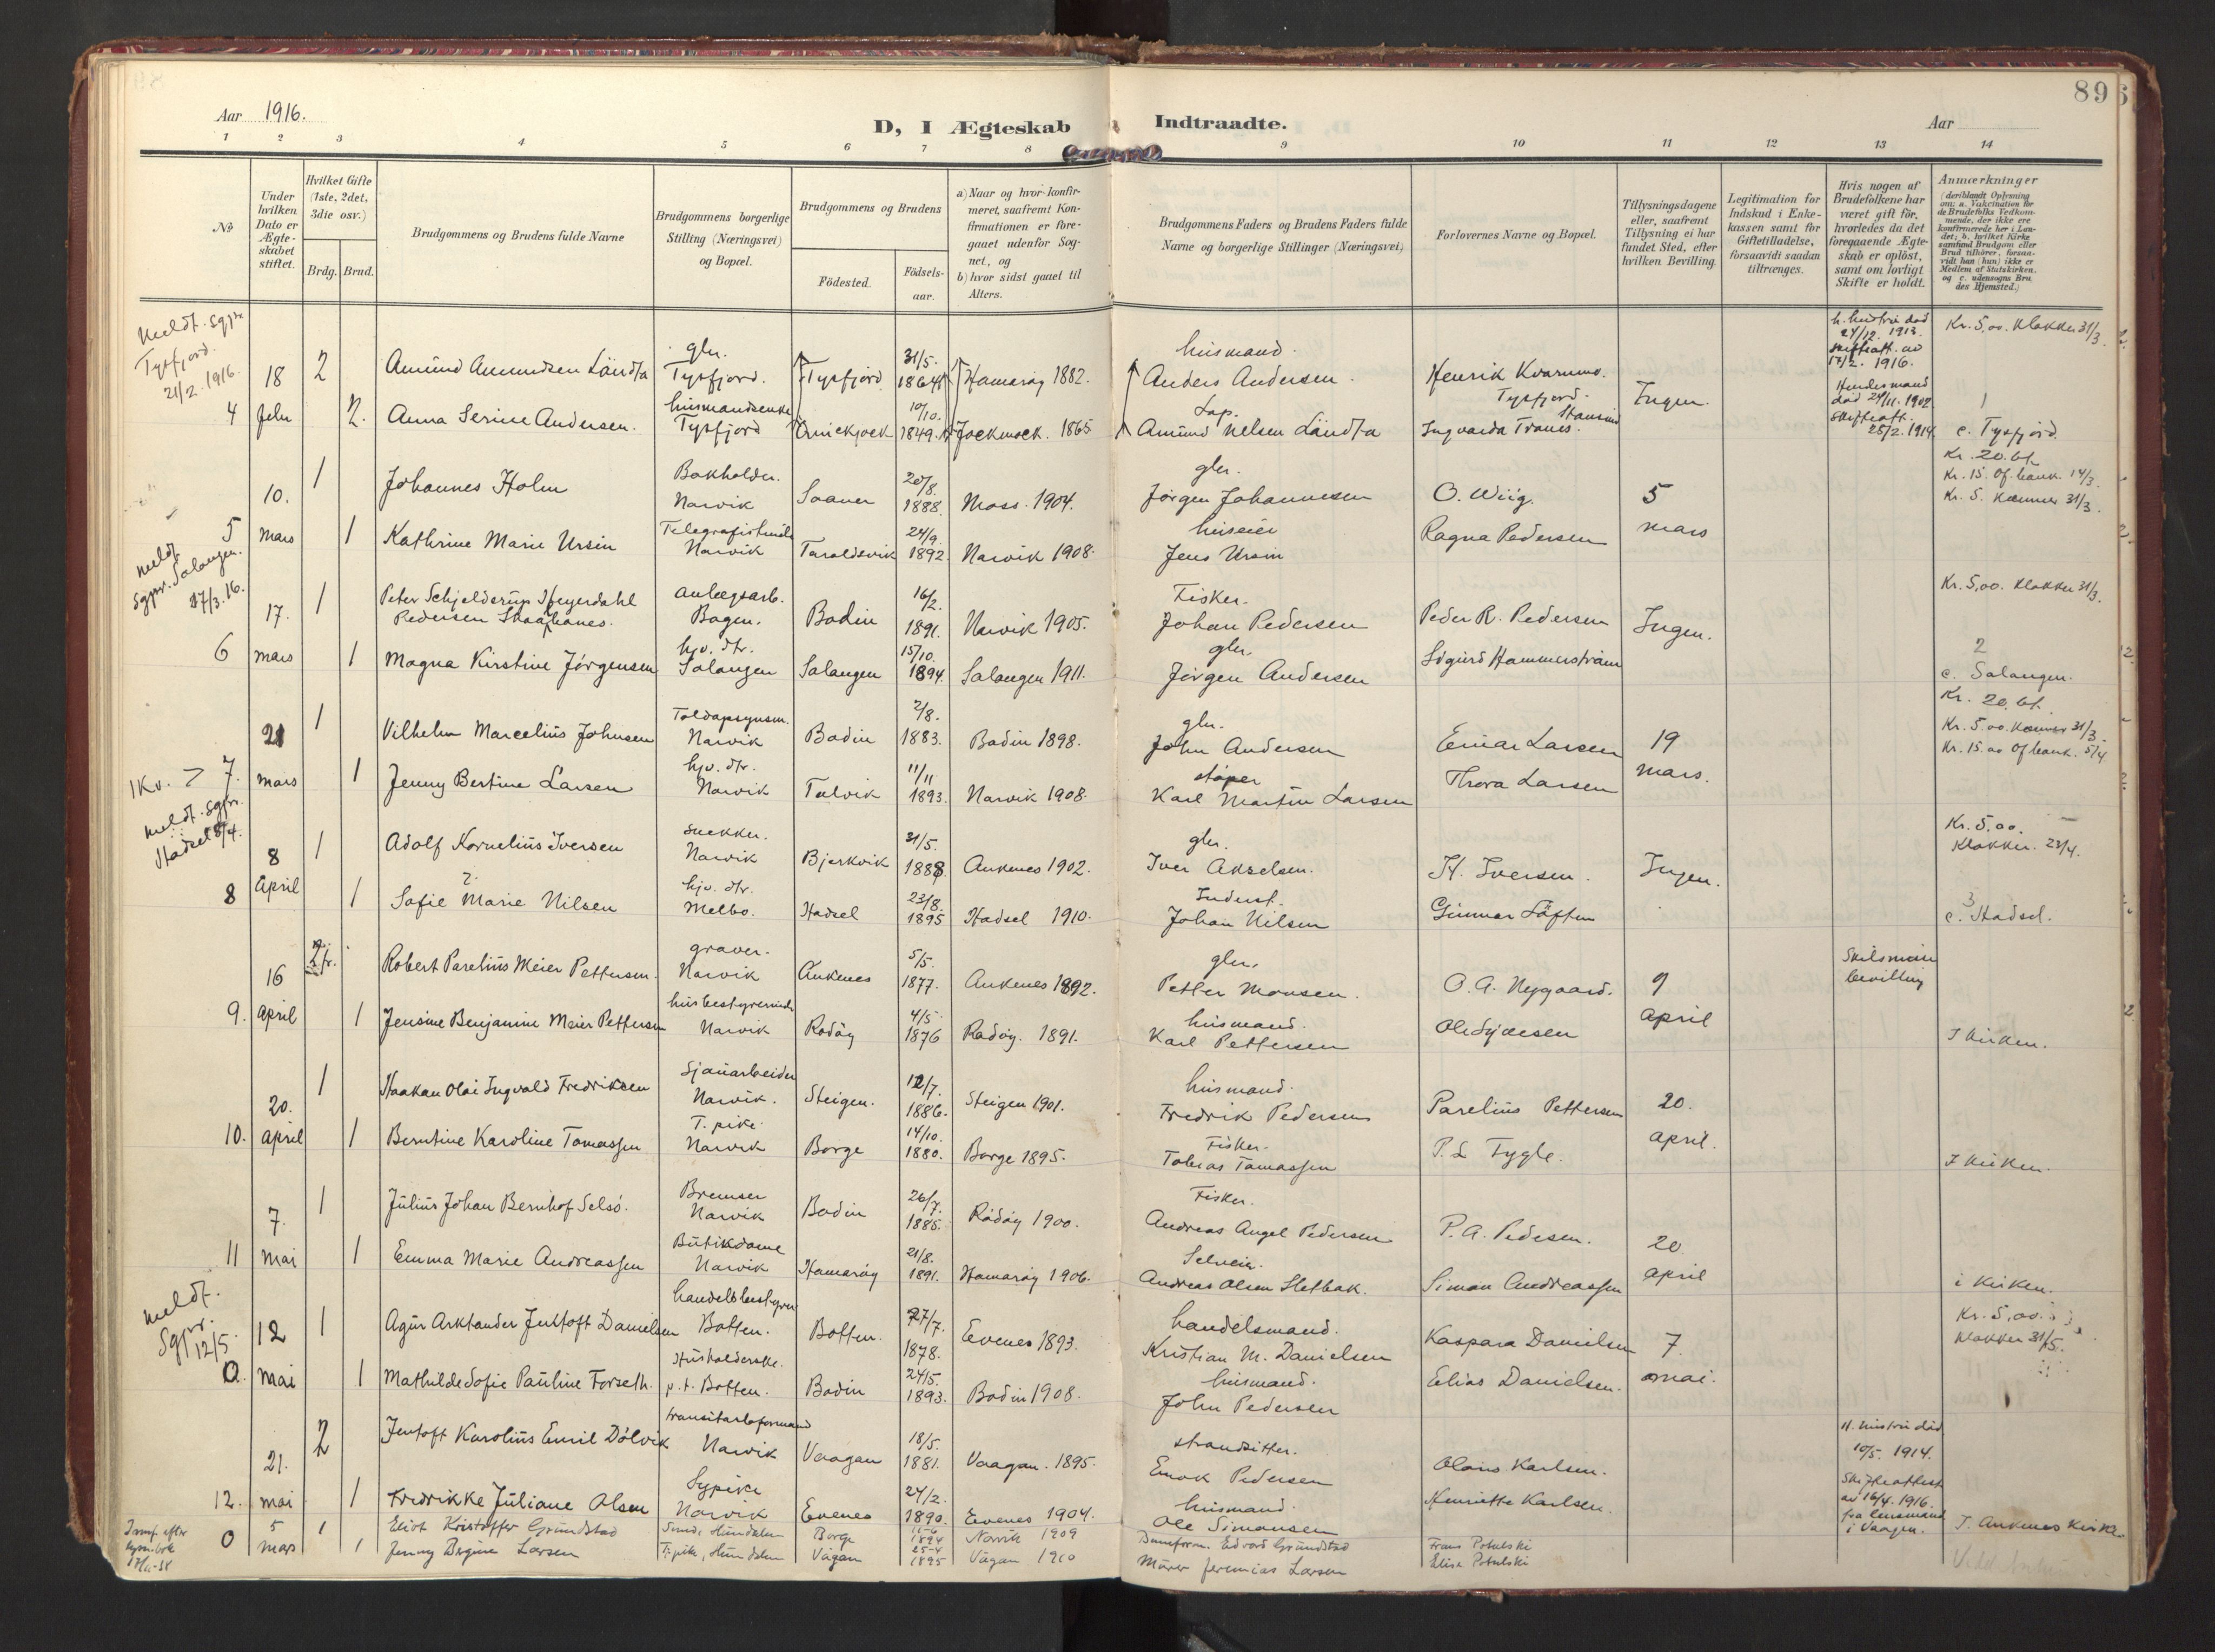 89
Aar 1916.
D, I Ægteskab Indtraadte.
Aar
1 2 3 4 5 6 7 8 9 10 11 12 13 14
No
Under hvilken Dato er Ægteskabet stiftet.
Hvilket Gifte (1ste, 2det, 3die osv.)
Brdg. Brud.
Brudgommens og Brudens fulde Navne
Brudgommens borgerlige Stilling (Næringsvei) og Bopæl.
Brudgommens og Brudens
Födested.
Födselsaar.
a) Naar og hvor konfirmeret, saafremt Konfirmationen er foregaaet udenfor Sognet, og
b) hvor sidst gaaet til Alters.
Brudgommens Faders og Brudens Faders fulde Navne og borgerlige Stillinger (Næringsvei)
Forlovernes Navne og Bopæl.
Tillysningsdagene eller, saafremt Tillysning ei har fundet Sted, efter hvilken Bevilling.
Legitimation for Indskud i Enkekassen samt for Giftetilladelse, forsaavidt saadan tiltrænges.
Hvis nogen af Brudefolkene har været gift för, hvorledes da det foregaaende Ægteskab er oplöst, samt om lovligt Skifte er holdt.
Anmærkninger
(deriblandt Oplysning om: a. Vakcination for de Brudefolks Vedkommende, der ikke ere konfirmerede her i Landet; b. hvilket Kirkesamfund Brudgom eller Brud tilhörer, forsaavidt han (hun) ikke er Medlem af Statskirken, og c. udensogns Brudes Hjemsted.)
Meldt. Sgpr. Tysfjord. 21/2. 1916.
18 2 Amund Amundsen Ländta glr. Tysfjord. Tysfjord 31/5. 1864 Hamaröy 1882. husmand. Anders Andersen. Henrik Kvarumo. Tysfjord. Ingen. h. hustru död 24/12. 1913. skifteatt. av 17/2. 1916. Kr. 5,00. Klokker 31/3.
4 febr 2. Anna Serine Andersen. husmandsenke Tysfjord Qvickjock 10/10. 1849. Jockmock. 1865 Lap. Amund Nelsen Ländta Ingvarda Tranes. Hendes mand död 24/11. 1902. skifteatt. 28/2. 1914. c. Tysfjord.
10. 1 Johannes Holm Bokholder. Narvik Saaner 20/8. 1888. Moss. 1904. glr. Jörgen Johannesen O. Wiig. 5 Kr. 20. bt. Kr. 15. Of. bank. 14/3. Kr. 5. Kæmner 31/3.
5 mars 1 Kathrine Marie Ursin Narvik Taraldsvik 24/9. 1892. Narvik 1908. huseier Jens Ursin Ragna Pedersen mars
meldt. Sgpr. Salangen. 17/3. 16.
17. 1 Peter Schjelderup Heyerdahl Pedersen anlægsarb. Bogen. Bodin 16/2. 1891. Narvik 1905. Fisker. Johan Pedersen Peder R. Pedersen Ingen. Kr. 5,00. Klokker 31/3.
6 mars 1 Magna Kirstine Jörgensen hjv. dtr. Salangen Salangen 15/10. 1894. Salangen 1911. glr. Jörgen Andersen Sigurd Hammerström 2 c. Salangen.
21 1 Vilhelm Marcelius Johnsen Toldopsynsm. Narvik Bodin 2/8. 1883. Bodin 1898. glr. John Andersen Einar Larsen 19 Kr. 20. bt. Kr. 5,00. Kæmner 31/3. Kr. 15.00 Of. bank. 5/4.
1 Kv. 7. mars 1 Jenny Bertine Larsen hjv. dtr. Narvik Talvik 11/11 1893. Narvik 1908. støper Karl Martin Larsen Thora Larsen mars.
meldt. Sgpr. Hadsel 8/4.
8 1 Adolf Kornelius Iversen snekker. Narvik Bjerkvik 31/5. 1888. Ankenes 1902. glr. Iver Akselsen. H. Iversen. Ingen. Kr. 5,00. Klokker. 23/4.
8 April 1 Sofie Marie Nilsen hjv. dtr. Melbo. Hadsel 23/8. 1895 Hadsel 1910. Inderst. Johan Nilsen Gunnar Löften 3 c. Hadsel.
16 2 fr. Robert Parelius Meier Pettersen. graver. Narvik Ankenes 5/5. 1877. Ankenes 1892. glr. Petter Monsen. O. A. Nygaard. 9 Skilsmissebevilling
9. April 1 Jensine Benjamine Meier Pettersen husbestyrerinde Narvik Rödöy 4/5. 1876 Rödöy. 1891. husmand. Karl Pettersen April I kirken.
20. 1 Haakon Olai Ingvald Fredriksen Sjauarbeider Narvik. Steigen. 12/7. 1886. Steigen 1901. husmand. Fredrik Pedersen Parelius Pettersen 20.
10. April 1 Berntine Karoline Tomassen T. pike. Narvik Borge 14/10. 1880. Borge 1895. Fisker. Tobias Tomassen P. L. Fygle. April. I kirken.
7. 1 Julius Johan Bernhof Selsö. Bremser Narvik Bodin 26/7. 1885. Rödöy 1900. Fisker. Andreas Angel Pedersen P. A. Pedersen. 20.
11 Mai 1 Emma Marie Andreassen Butikdame Narvik Hamaröy 21/8. 1891. Hamaröy 1906. Selveier. Andreas Olsen Sletbak. Simon Andreassen April i kirken.
meldt. Sgpr. 12/5.
12 1 Agur Arktander Jentoft Danielsen handelsbestyrer Botten. Botten. 27/7. 1878. Evenes 1893. handelsmand. Kristian M. Danielsen Kaspara Danielsen 7. Kr. 5,00. Klokker 31/5.
0. Mai 1 Mathilde Sofie Pauline Forseth. Husholderske. p. t. Botten. Bodin 24/5. 1893. Bodin 1908. husmand. John Pedersen Elias Danielsen. mai.
21. 2 Jentoft Karolius Emil Dölvik transitarb.formand Narvik Vaagan 18/5. 1881. Vaagan. 1895. strandsitter. Enok Pedersen Olaus Karlsen. H. hustru död 10/5. 1914.
12. mai 1 Fredrikke Juliane Olsen Sypike Narvik Evenes 24/2. 1890. Evenes 1904. husmand. Ole Simonsen Henriette Karlsen. Skifteattest av 16/4. 1916. fra lensmand i Vaagan. I. Ankenes kirke.
Innf. efter
0 5 mars 1 Eliot Kristoffer Grundstad Hundalen Borge 1894 Narvik 1909 Edvard Grundstad Frans Potulski
1 Jenny Birgine Larsen T. pike, Hundalen Vågan 25-4 1895 Vågan 1910 Murer Jeremias Larsen Elisa Potulski